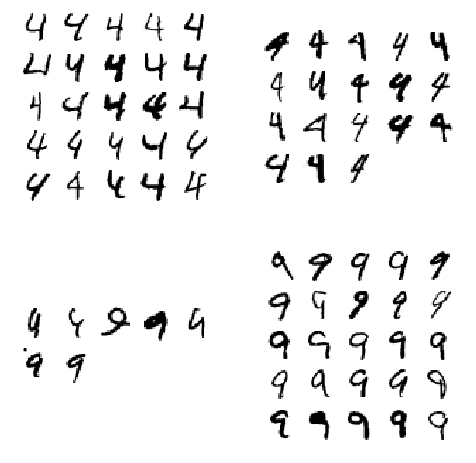 4 4 4 4 4
4 4 4 4 4
4 4 4 4 4
4 4 4 4 4
4 4 4 4 4
4 4 4 4 4
4 4 4 4 4
4 4 4 4 4
4 4 4
9 9
9 9
9 9 9 9 9
9 9 9 9 9
9 9 9 9 9
9 9 9 9 9
9 9 9 9 9